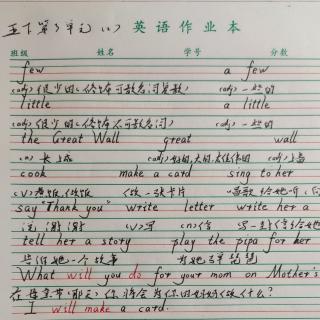 五下第3单元 (1) 英语作业本
班级 姓名 学号 分数
few a few
(adj) 很少的(修饰可数名词复数) (adj) 一些的
little a little
(adj) 很少的(修饰不可数名词) (adj) 一些的
the Great Wall great wall
(n) 长城 (adj) 好的,大的, (adj) 
cook make a card sing to her
(v) 煮饭,做饭 做一张卡片 唱歌给她听
say "Thank you" write letter write her a
说谢谢 (v) 写 (n) 信 写一封信给她
tell her a story play the pipa for her
告诉她一个故事 为她弹琵琶
What will you do for your mom on Mother's
在母亲节那天,你将会为你的妈妈做什么?
I will make a card.